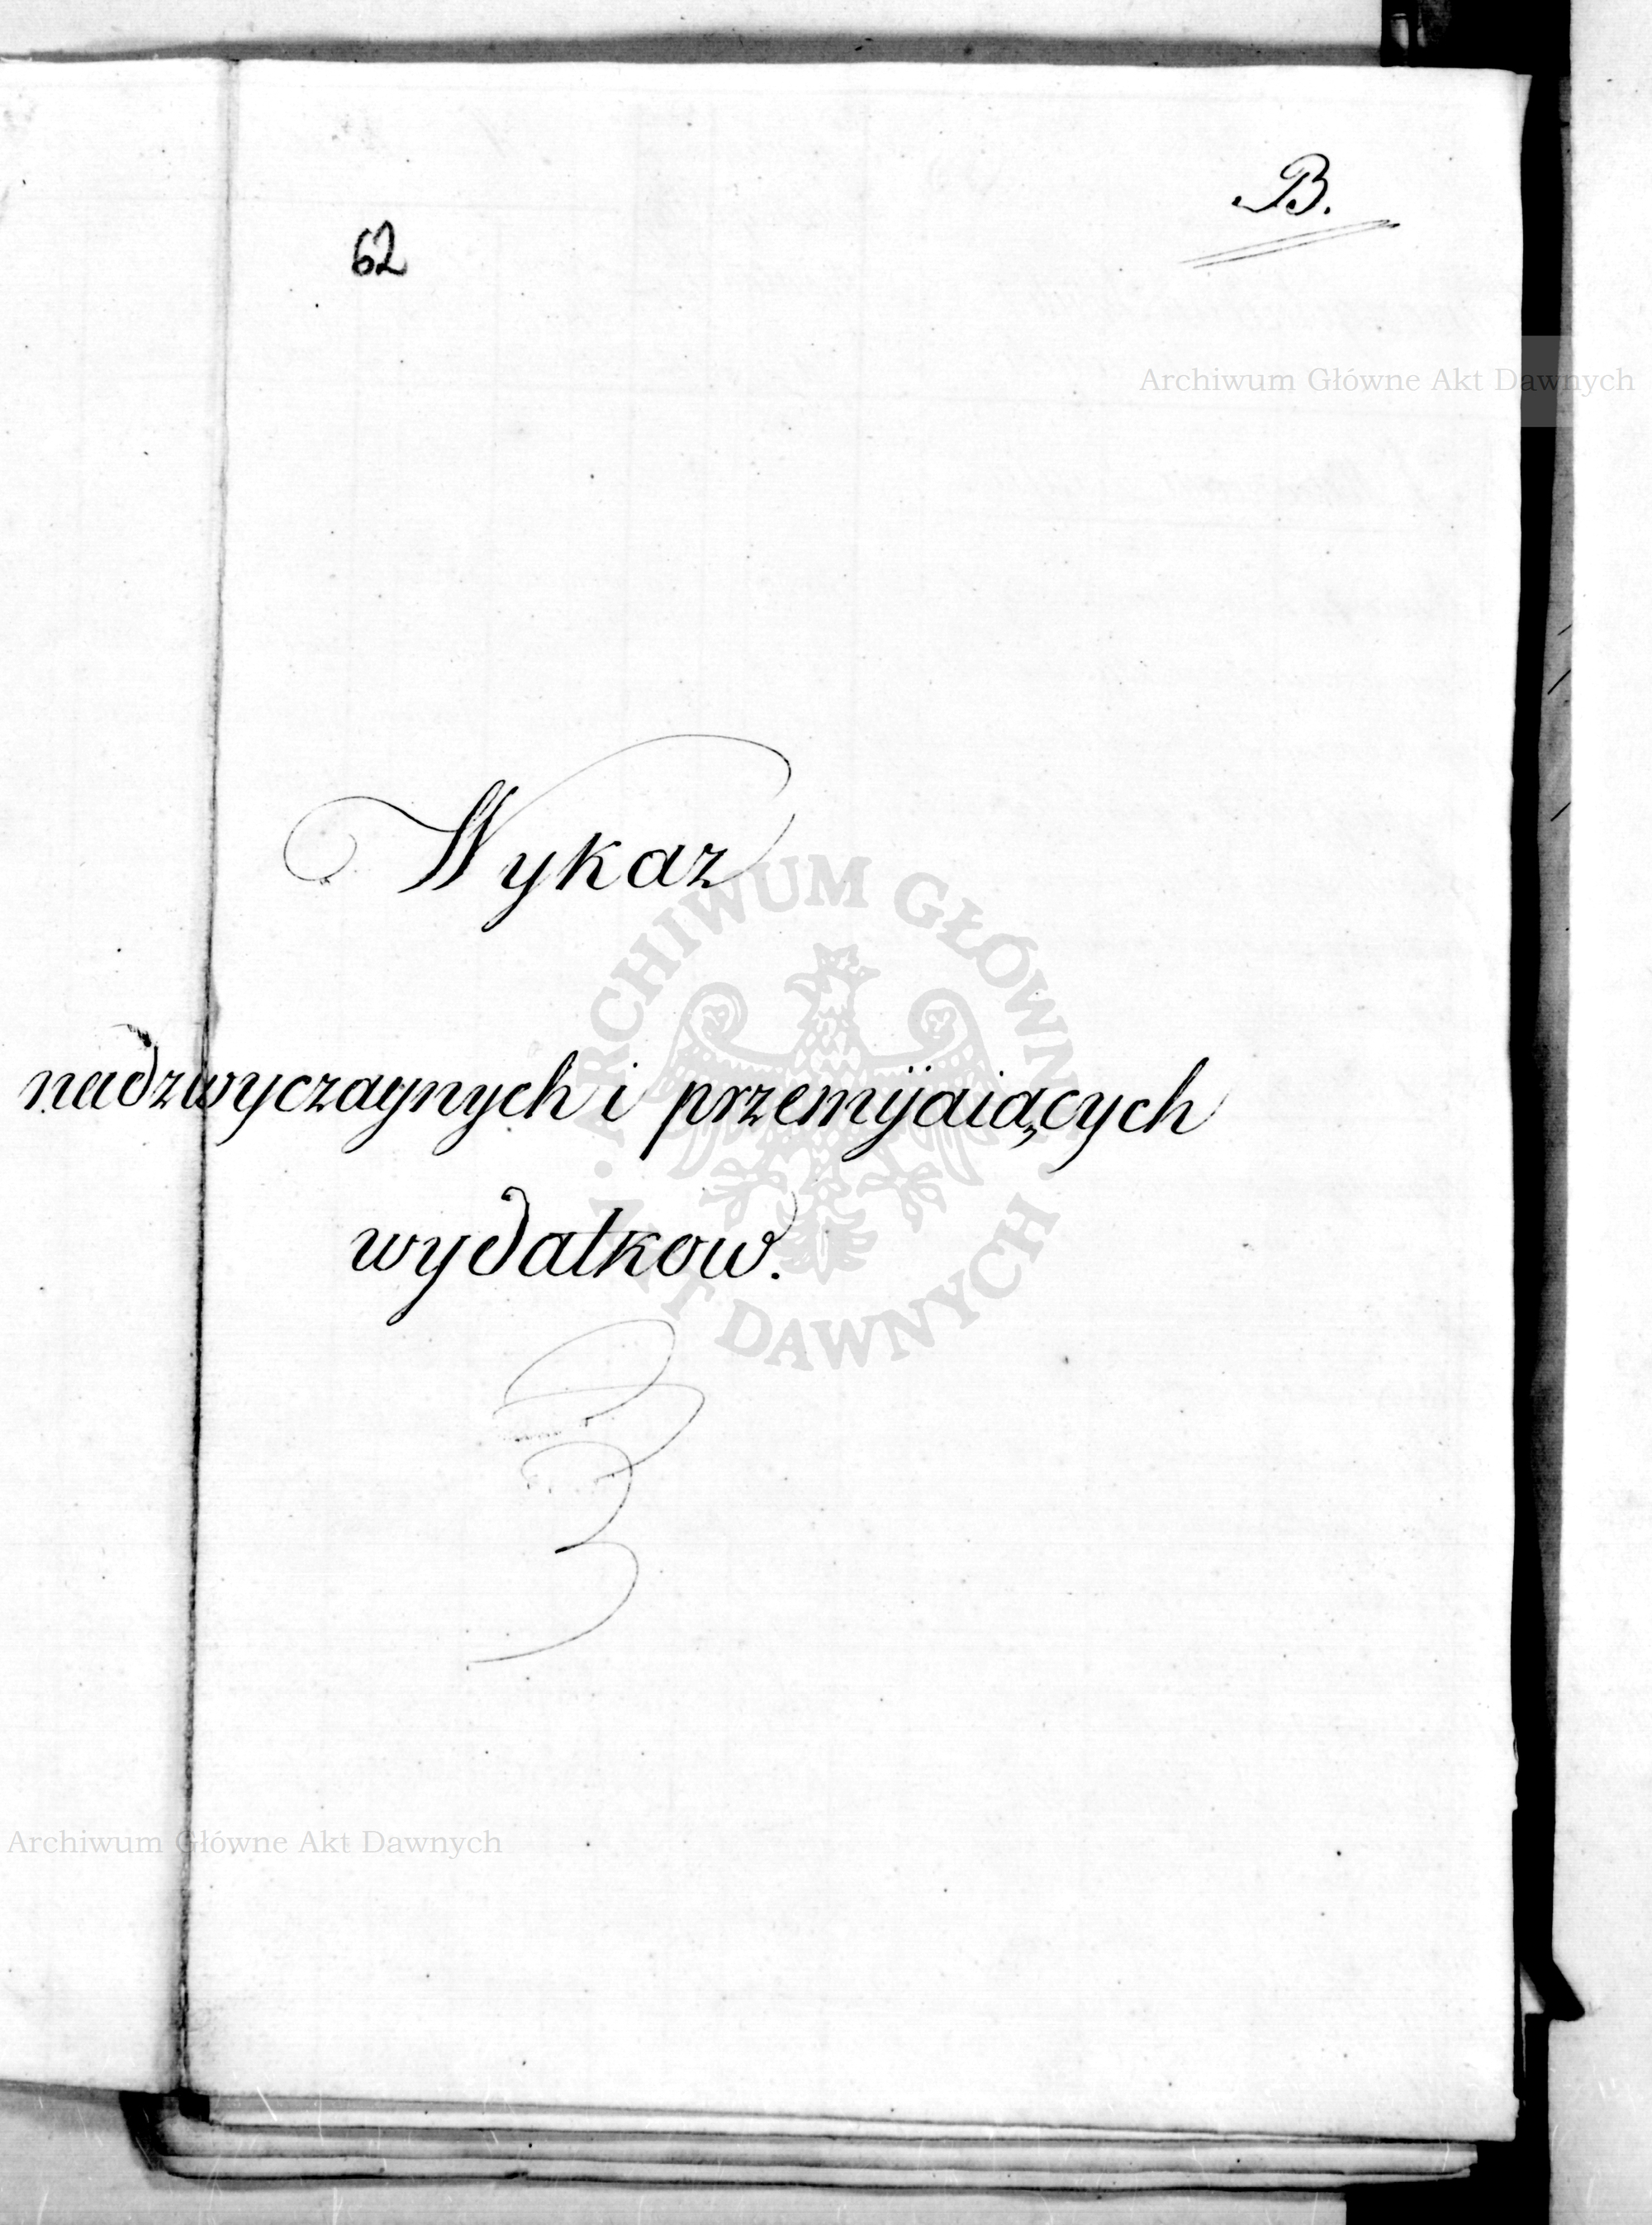 B.
62
Archiwum Główne Akt Dawnych
Wykaz
nadzwyczaynych i przemijaiących
wydatkow.
ARCHIWUM GŁÓWNE AKT DAWNYCH
Archiwum Główne Akt Dawnych